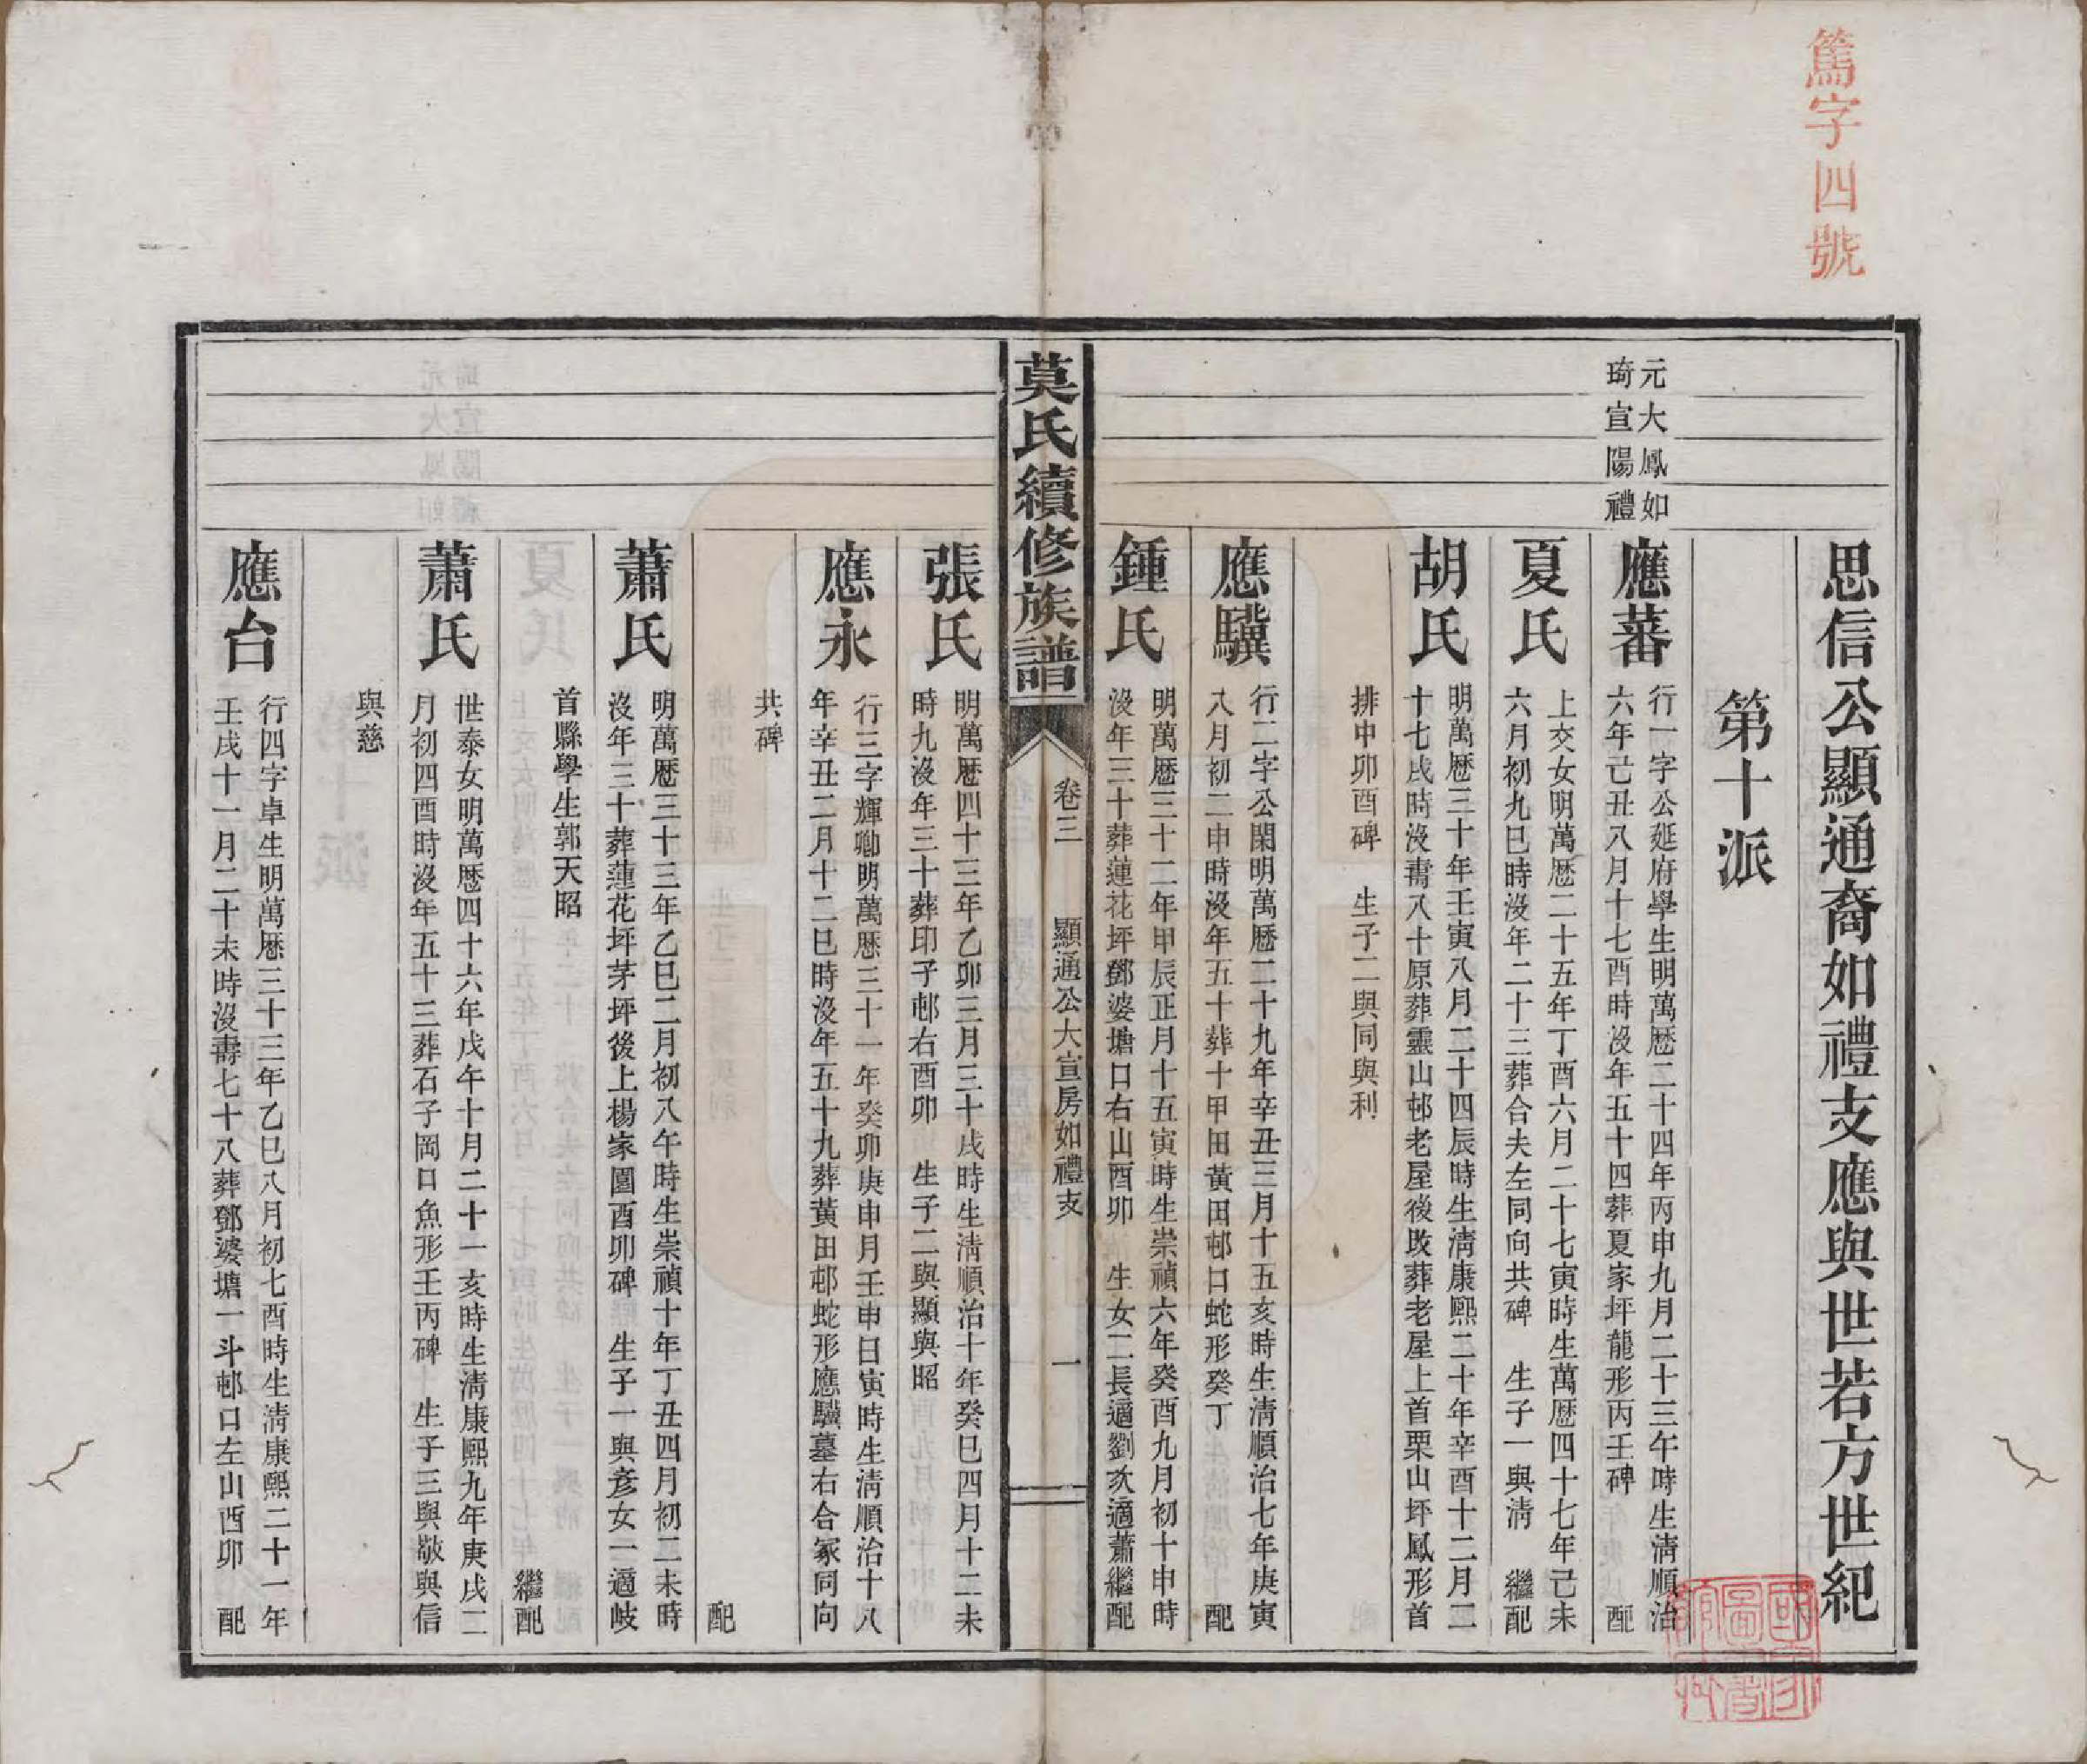 篤字四號
思信公顯通裔如禮支應與世若方世紀
第十派
元大鳳如
琦宣陽禮
應蕃
行一字公綎府學生明萬歷二十四年丙申九月二十三午時生淸順治
六年己丑八月十七酉時沒年五十四葬夏家坪龍形丙壬碑　配
夏氏
上交女明萬歷二十五年丁酉六月二十七寅時生萬歷四十七年己未
六月初九巳時沒年二十三葬合夫左同向共碑　生子一與淸　繼配
胡氏
明萬歷三十年壬寅八月二十四辰時生淸康熙二十年辛酉十二月二
十七戌時沒壽八十原葬靈山邨老屋後改葬老屋上首栗山坪鳳形首
排中卯酉碑　生子二與同與利
應驥
行二字公閑明萬歷二十九年辛丑三月十五亥時生淸順治七年庚寅
八月初二申時沒年五十葬十甲田黃田邨口蛇形癸丁　配
鍾氏
明萬歷三十二年甲辰正月十五寅時生崇禎六年癸酉九月初十申時
沒年三十葬蓮花坪鄧婆塘口右山酉卯　生女二長適劉次適蕭繼配
莫氏續修族譜
卷三　顯通公大宣房如禮支　一
張氏
明萬歷四十三年乙卯三月三十戌時生淸順治十年癸巳四月十二未
時九沒年三十葬印子邨右酉卯　生子二與顯與昭
應永
行三字輝卿明萬歷三十一年癸卯庚申月壬申日寅時生淸順治十八
年辛丑二月十二巳時沒年五十九葬黃田邨蛇形應驥墓右合冢同向
共碑　配
蕭氏
明萬歷三十三年乙巳二月初八午時生崇禎十年丁丑四月初二未時
沒年三十葬蓮花坪茅坪後上楊家園酉卯碑　生子一與彥女一適岐
首縣學生郭天昭　繼配
蕭氏
世泰女明萬歷四十六年戊午十月二十一亥時生淸康熙九年庚戌二
月初四酉時沒年五十三葬石子岡口魚形壬丙碑　生子三與敬與信
與慈
應台
行四字卓生明萬歷三十三年乙巳八月初七酉時生淸康熙二十一年
壬戌十一月二十未時沒壽七十八葬鄧婆塘一斗邨口左山酉卯　配